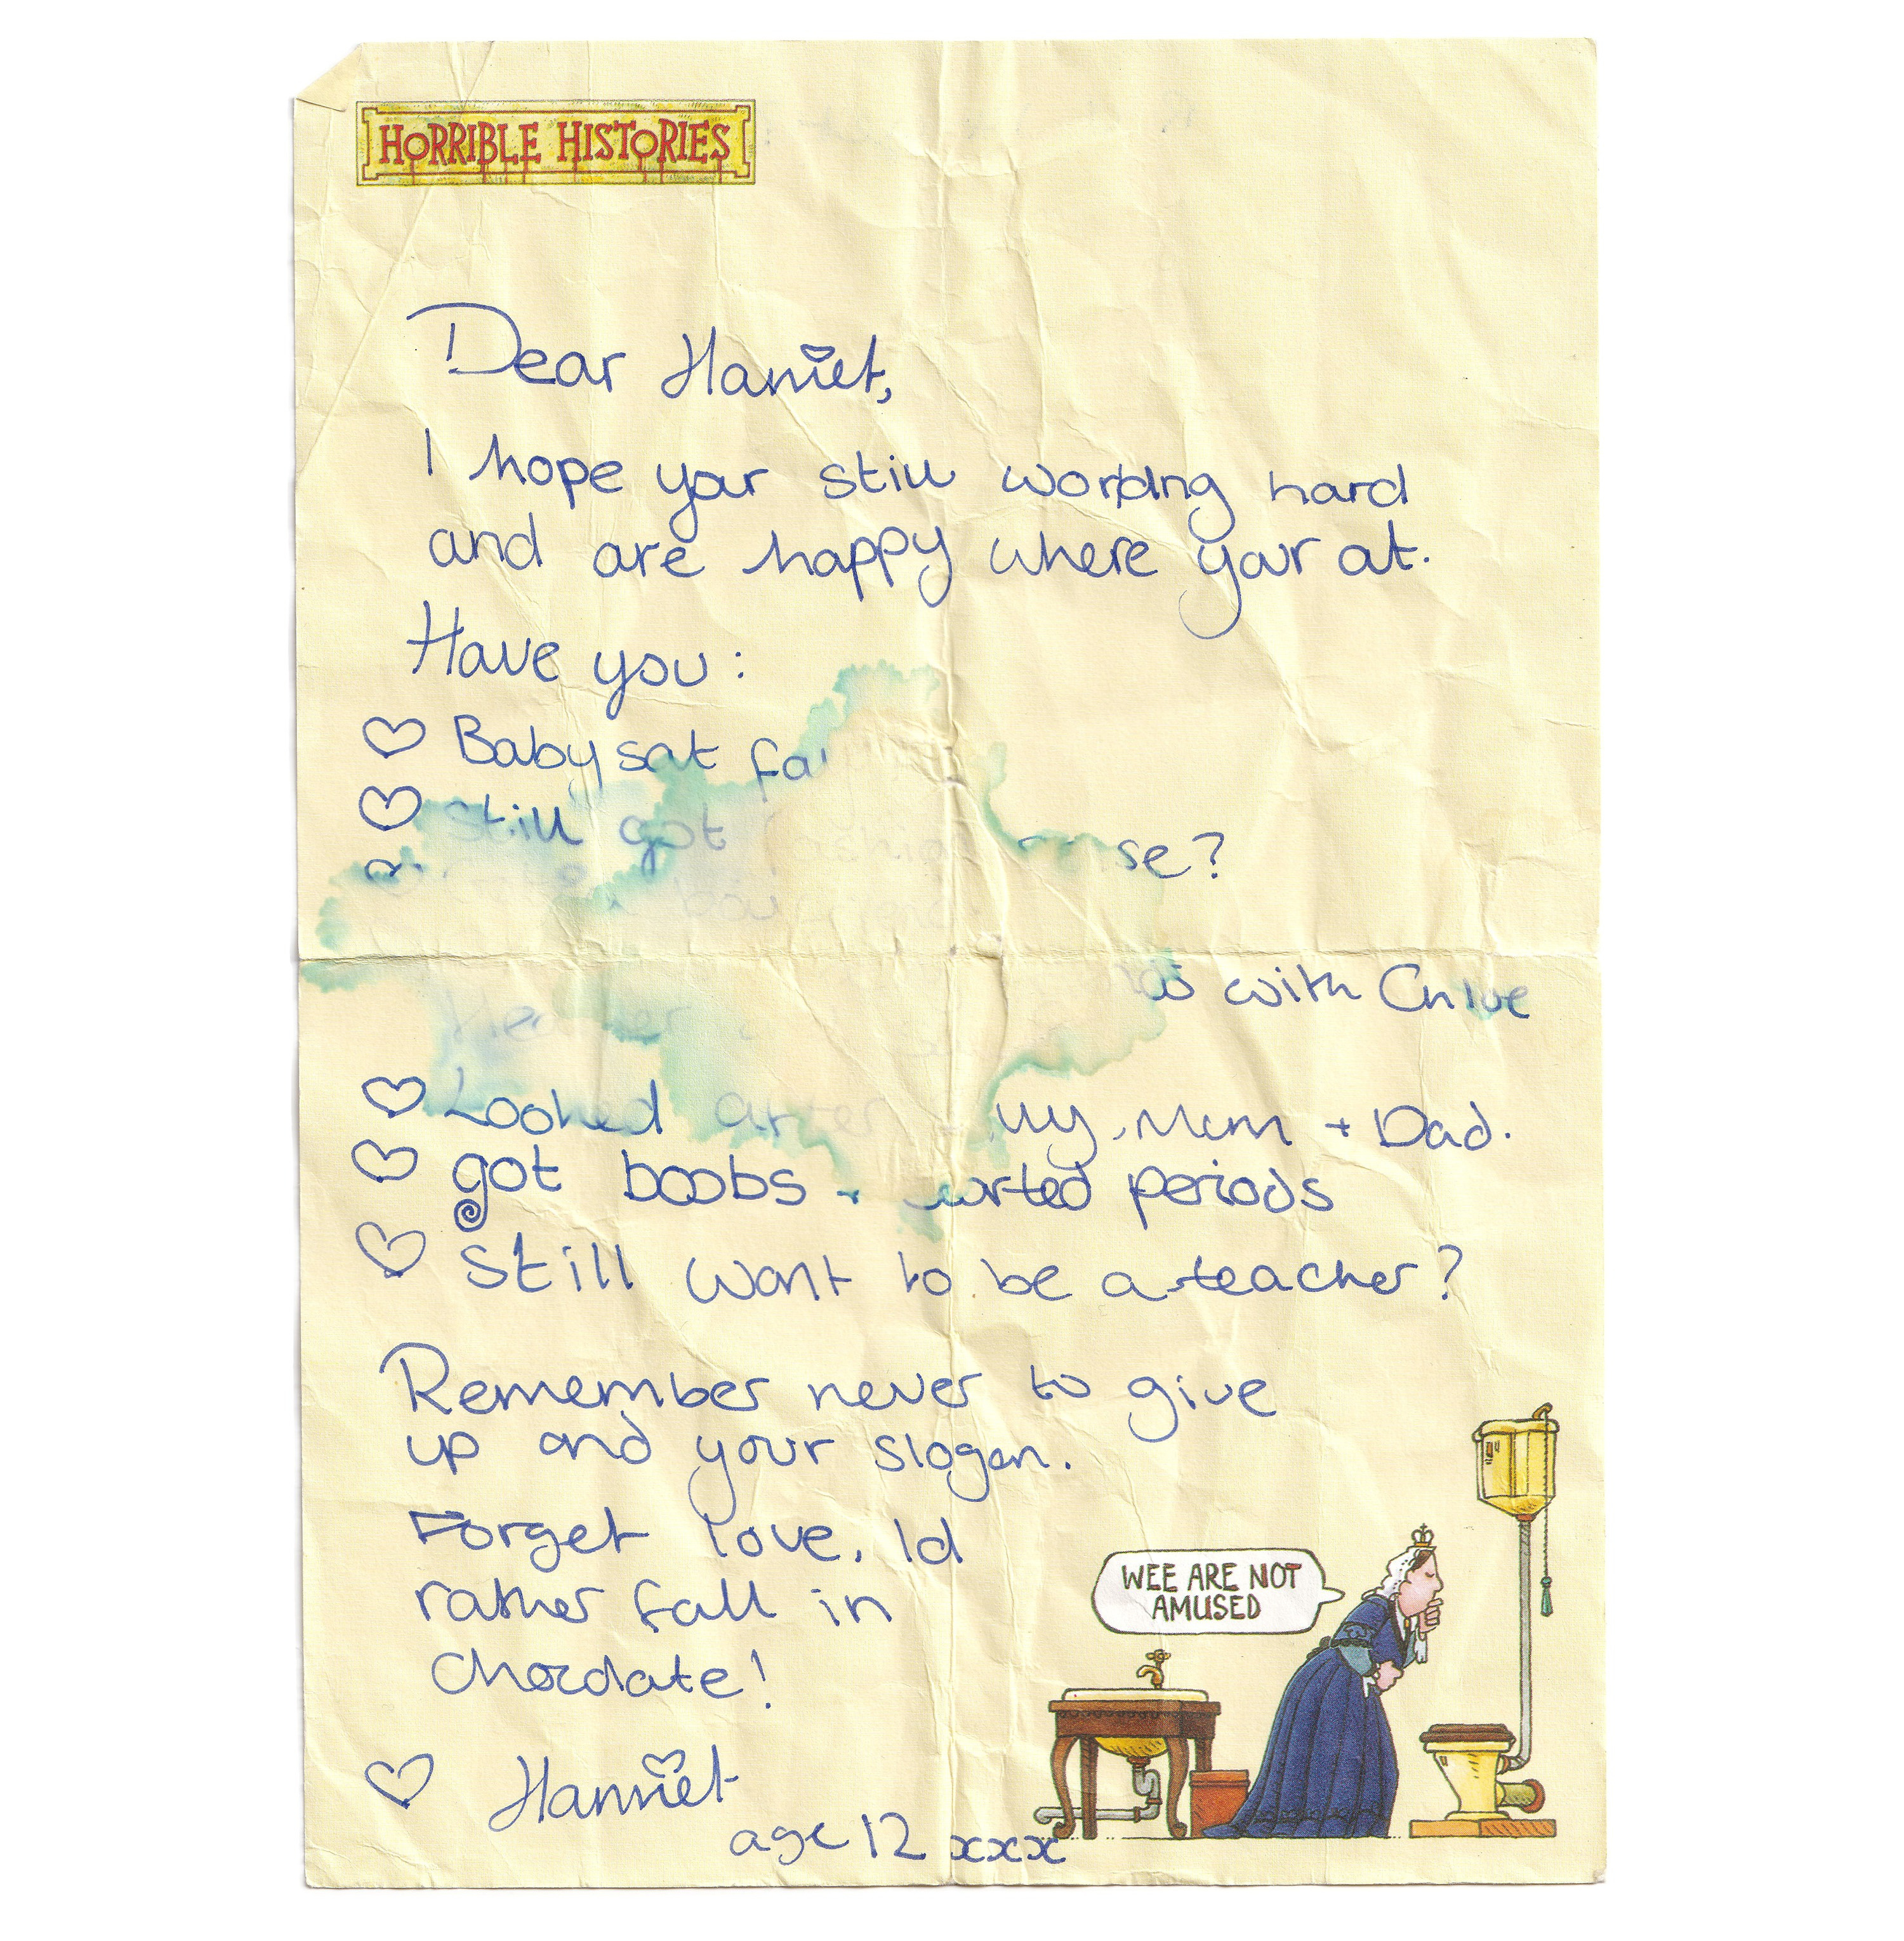 HORRIBLE HISTORIES
Dear Harriet,
I hope your still working hard
and are happy where your at.
Have you:
♡ Baby sat
♡ still got fashion se?
boyfriend
with Chloe
Heather
♡ Looked after Mum + Dad.
♡ got boobs + started periods
♡ Still want to be a teacher?
Remember never to give
up and your slogan.
Forget love, Id
rather fall in
chocolate!
♡ Harriet
age 12 xxx
WEE ARE NOT
AMUSED